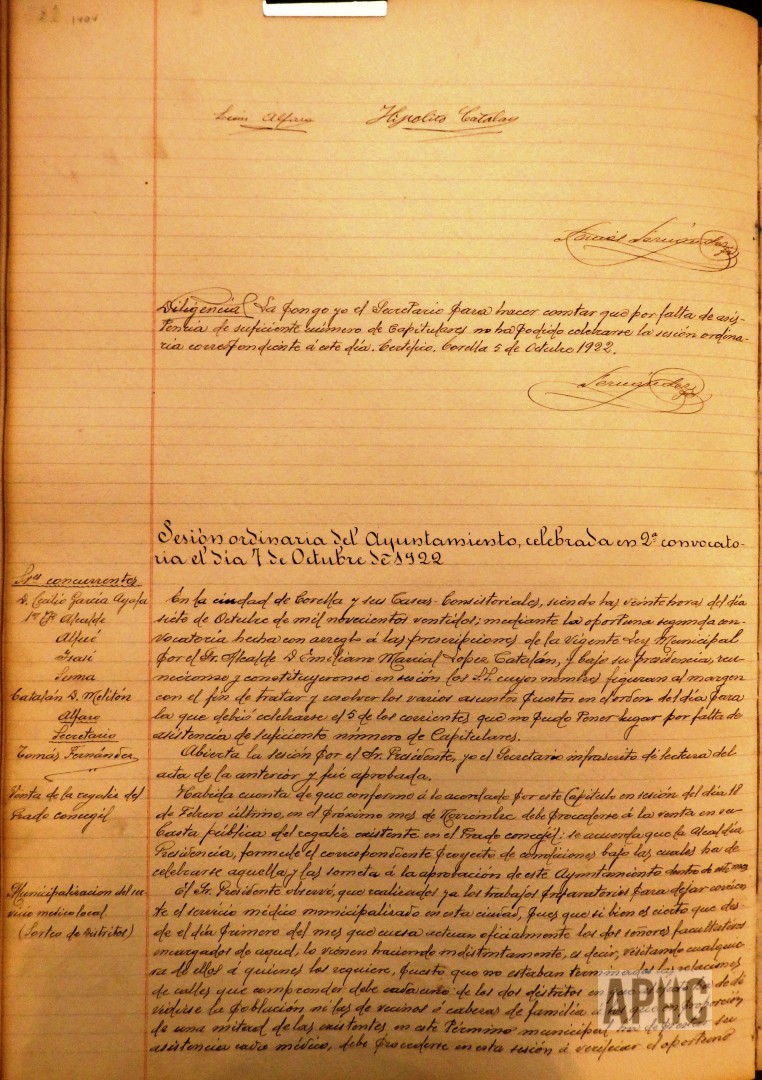 León Alfaro    Hipolito Catalan
Tomás Fernández
Diligencia La pongo yo el Secretario para hacer constar que por falta de asis-
tencia de suficiente número de Capitulares no ha podido celebrarse la sesión ordina-
ria correspondiente á este día. Certifico. Corella 5 de Octubre 1922.
Fernández
Sesión ordinaria del Ayuntamiento, celebrada en 2ª convocato-
ria el día 7 de Octubre de 1922
Sres concurrentes
D. Cecilio García Ayala
1er Tte Alcalde
Alfaro
Catalán D. Melitón
Alfaro
Secretario
Tomás Fernández
Venta de la regaliz del
Prado concegil
Municipalización del ser-
vicio médico local
(Sorteo de Distritos)
En la ciudad de Corella y sus Casas-Consistoriales, siendo las veinte horas del día
siete de Octubre de mil novecientos ventidos; mediante la oportuna segunda con-
vocatoria hecha con arreglo á las prescripciones de la Vigente Ley Municipal
por el Sr. Alcalde D. Emiliano Marcial López Catalán, y bajo su presidencia, reu-
nieronse y constituyeronse en sesión los SS. cuyos nombres figuran al margen
con el fin de tratar y resolver los varios asuntos puestos en el orden del día para
la que debió celebrarse el 5 de los corrientes que no pudo tener lugar por falta de
asistencia de suficiente número de Capitulares.
Abierta la sesión por el Sr. Presidente, yo el Secretario infrascrito dí lectura del
acta de la anterior y fué aprobada.
Habida cuenta de que conforme á lo acordado por este Capitulo en sesión del día 18
de Febrero último, en el próximo mes de Noviembre debe procederse á la venta en su-
basta pública del regaliz existente en el Prado concejil; se acuerda que la Alcaldía
Presidencia, formule el correspondiente proyecto de condiciones bajo las cuales ha de
celebrarse aquella, y las someta á la aprobación de este Ayuntamiento dentro de este mes
El Sr. Presidente observó, que realizados ya los trabajos preparatorios para dejar correcta-
te el servicio médico municipalizado en esta ciudad, pues que si bien es cierto que des-
de el día primero del mes que cursa actuan oficialmente los dos señores facultativos
encargados de aquel, lo vienen haciendo indistintamente, es decir, visitando cualquie-
ra de ellos á quienes los requiere, puesto que no estaban terminadas las relaciones
de calles que comprender debe cada uno de los dos distritos en de di-
vidirse la población ni las de vecinos ó cabezas de familia proporción
de una mitad de las existentes en este término municipal su
asistencia cada médico, debe procederse en esta sesión á verificar el oportuno
APHG